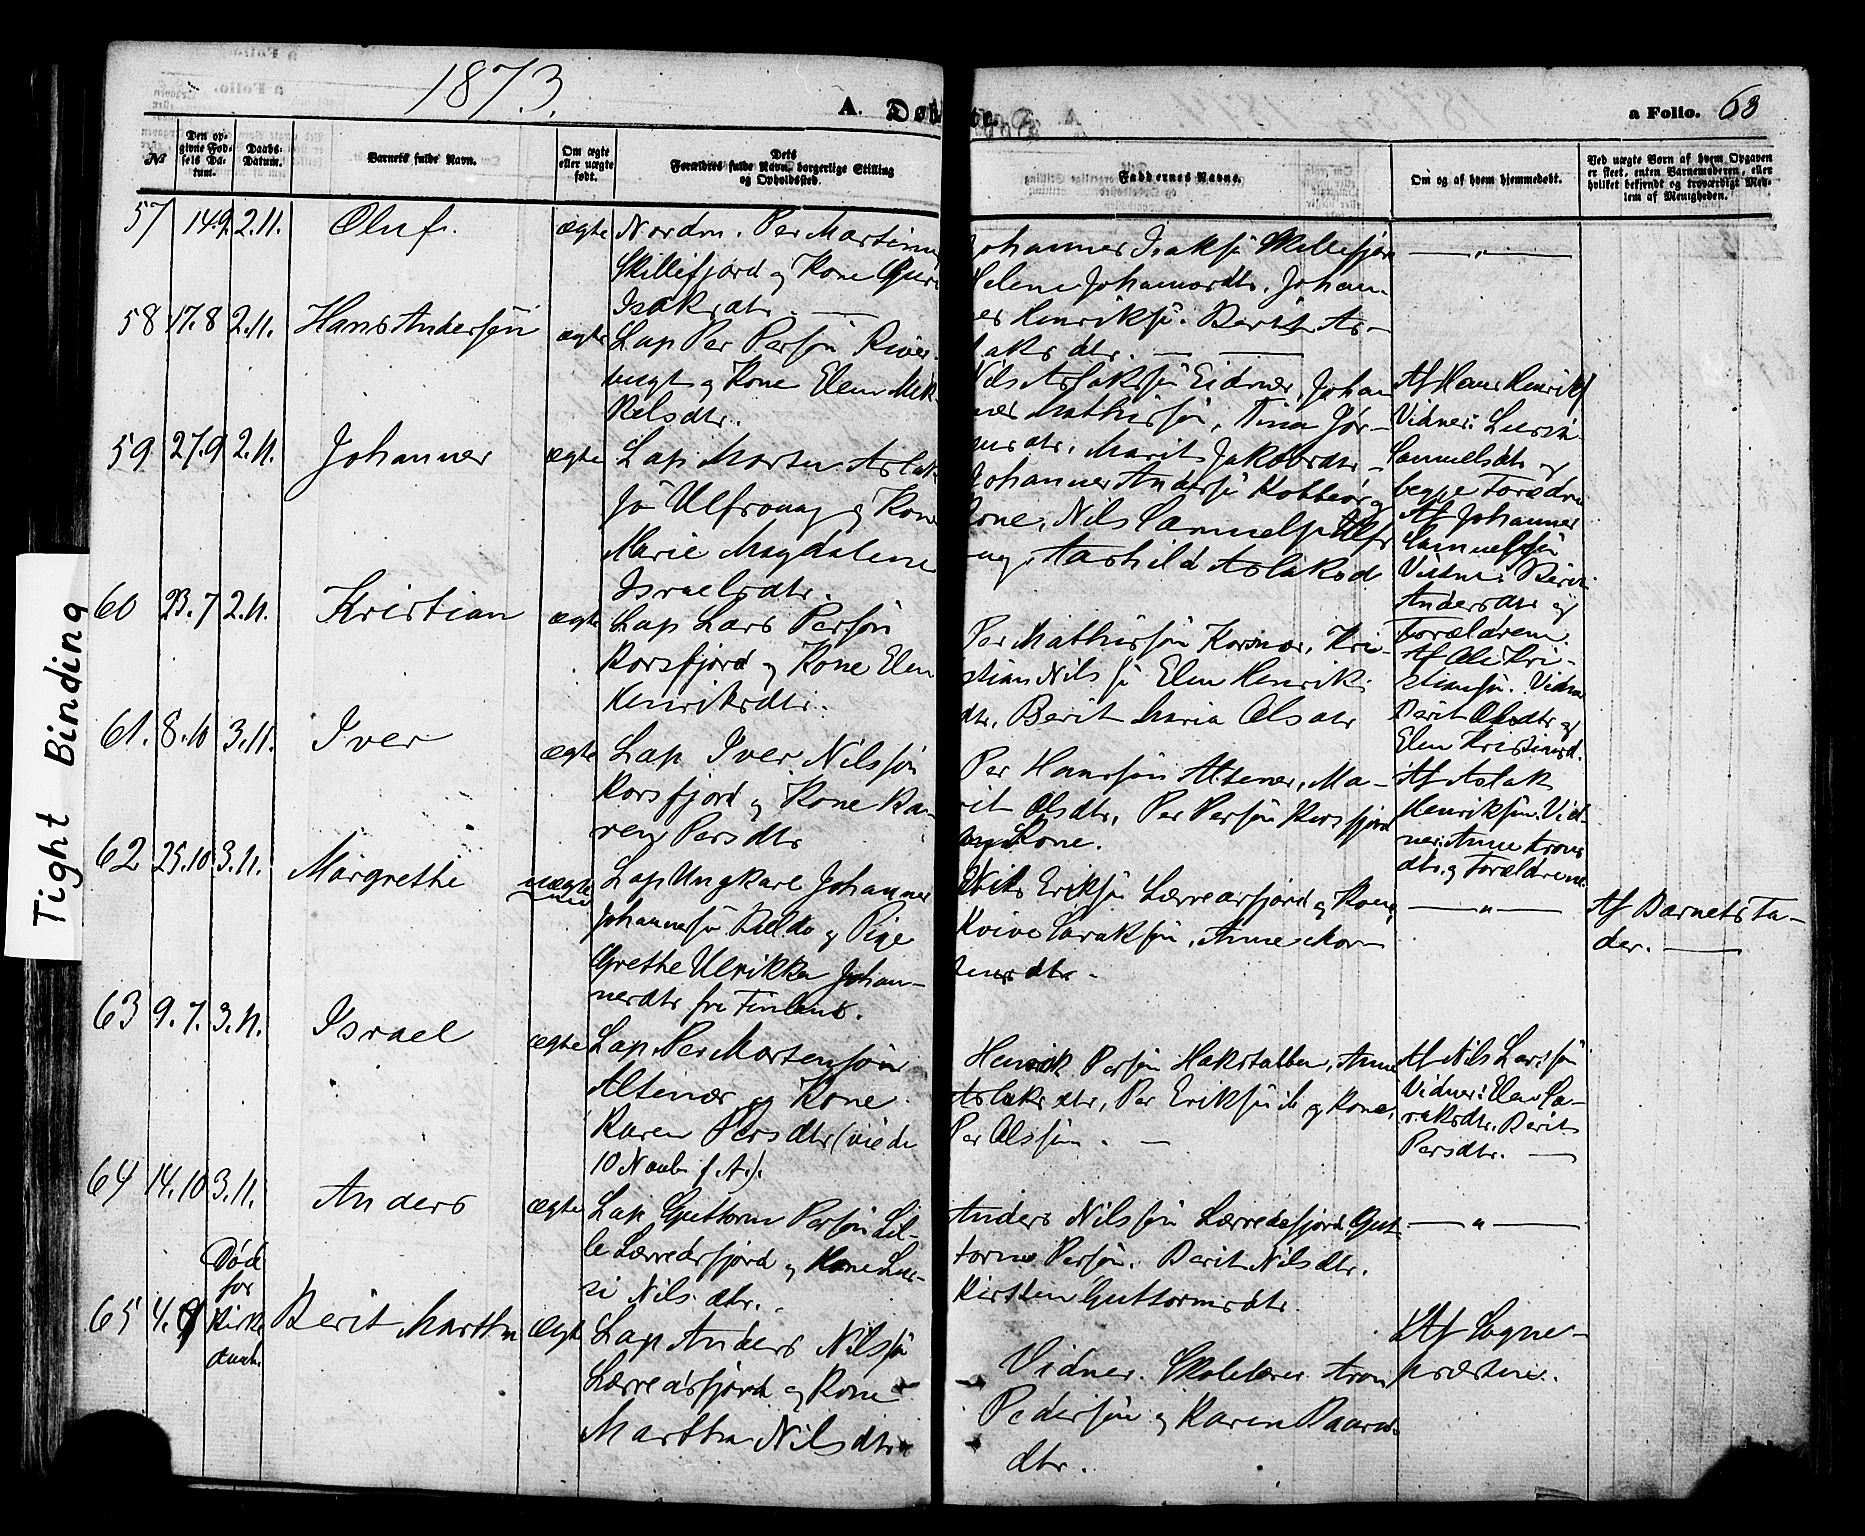 1873.
A. Døb
be.
a Folio. 63
№
Den opgivne Fødsels Datum.
Daabs-Datum.
Barnets fulde Navn.
Om ægte eller uægte født.
Dets Forældres fulde Navn, borgerlige Stilling og Opholdssted.
Faddernes Navne.
Om og af hvem hjemmedøbt.
Ved uægte Børn af hvem Opgaven er skeet, enten Barnemoderen, eller hvilket bekjendt og troværdigt Medlem af Menigheden.
57 14.9 2.11. Oluf. ægte Nordm. Per Martinus
Skillefjord og Kone Guri
Isaksdtr.
Johannes Isaksø Skillefjor
Helene Johannesdtr. Johan-
es Henriksø. Berit As-
laksdtr.
58 17.8 2.11. Hans Andersøn ægte Lap Per Persøn River-
bugt og Kone Elen Mik-
kelsdtr.
Nils Aslaksøn Eidnær, Johan
nes Mathisøn, Tina Jør-
Marit Jakobsdtr
Af Hans Henriks
Vidner:
Samuelsdtr og
begge Forældre
59 27.9 2.11. Johannes ægte Lap Morten Aslak
sø Ulfvaag og Kone
Marie Magdalene
Israelsdtr.
Johannes Andersø Kobbeør og
Kone, Nils Samuelsø Ulfv
aag, Aashild Aslaksd
Af Johannes
Samuelsøn
Vidne: Berit
Andersdtr og
Forældrene
60 23.7 2.11. Kristian ægte Lap Lars Persøn
Korsfjord og Kone Elen
Henriksdtr.
Per Mathisøn Korsnæs, Kri-
stian Nilsø Elen Henriks
dtr, Berit Maria Olsdtr
Af Ole Kri-
stiansø. Vidne
Berit Olsdtr og
Elen Kristiansd.
61. 8.10 3.11. Iver ægte Lap Iver Nilssøn
Korsfjord og Kone Ka-
ren Persdtr
Per Hansøn Altenes, Ma-
rit Olsdtr, Per Persøn Korsfjord
og Kone.
Af Aslak
Henriksøn. Vid-
ner: Anne Arons
dtr. og Forældrene.
62 25.10 3.11. Margrethe uægte Lap Ungkarl Johannes
Johannesø og Pige
Grethe Ulrikka Johan-
nesdtr fra Finland.
Nils Eriksøn Lerresfjord og Kone,
Kvive Isaksøn, Anne Mor-
tensdtr.
Af Barnets Fa-
der.
63 9.7. 3.11. Israel ægte Lap Per Mortensøn
Altenær og Kone
Karen Persdtr (viede
10 Novbr f. A.).
Henrik Persøn Hakstabben, Anne
Aslaksdtr, Per Eriksøn og Kone,
Per Olssøn.
Af Nils Larsøn
Vidner: Elen Sa-
raksdtr. Berit
Persdtr.
64 14.10 3.11. Anders ægte Lap Guttorm Persøn Lil-
le Lærredsfjord og Kone Lus-
si Nilsdtr.
Anders Nilssøn Lærredsfjord Gut
torm Persøn. Berit Nilsdtr.
Kirsten Guttormsdtr.
65 4.9 Død
for
Kirke
daab.
Berit Martha Ægte Lap Anders Nilssø
Lærredsfjord og Kone
Martha Nilsdtr
Vidner. Skolelærer Aron
Pedersøn og Karen Baards
dtr.
Af Sogne-
præsten.
Tight Binding